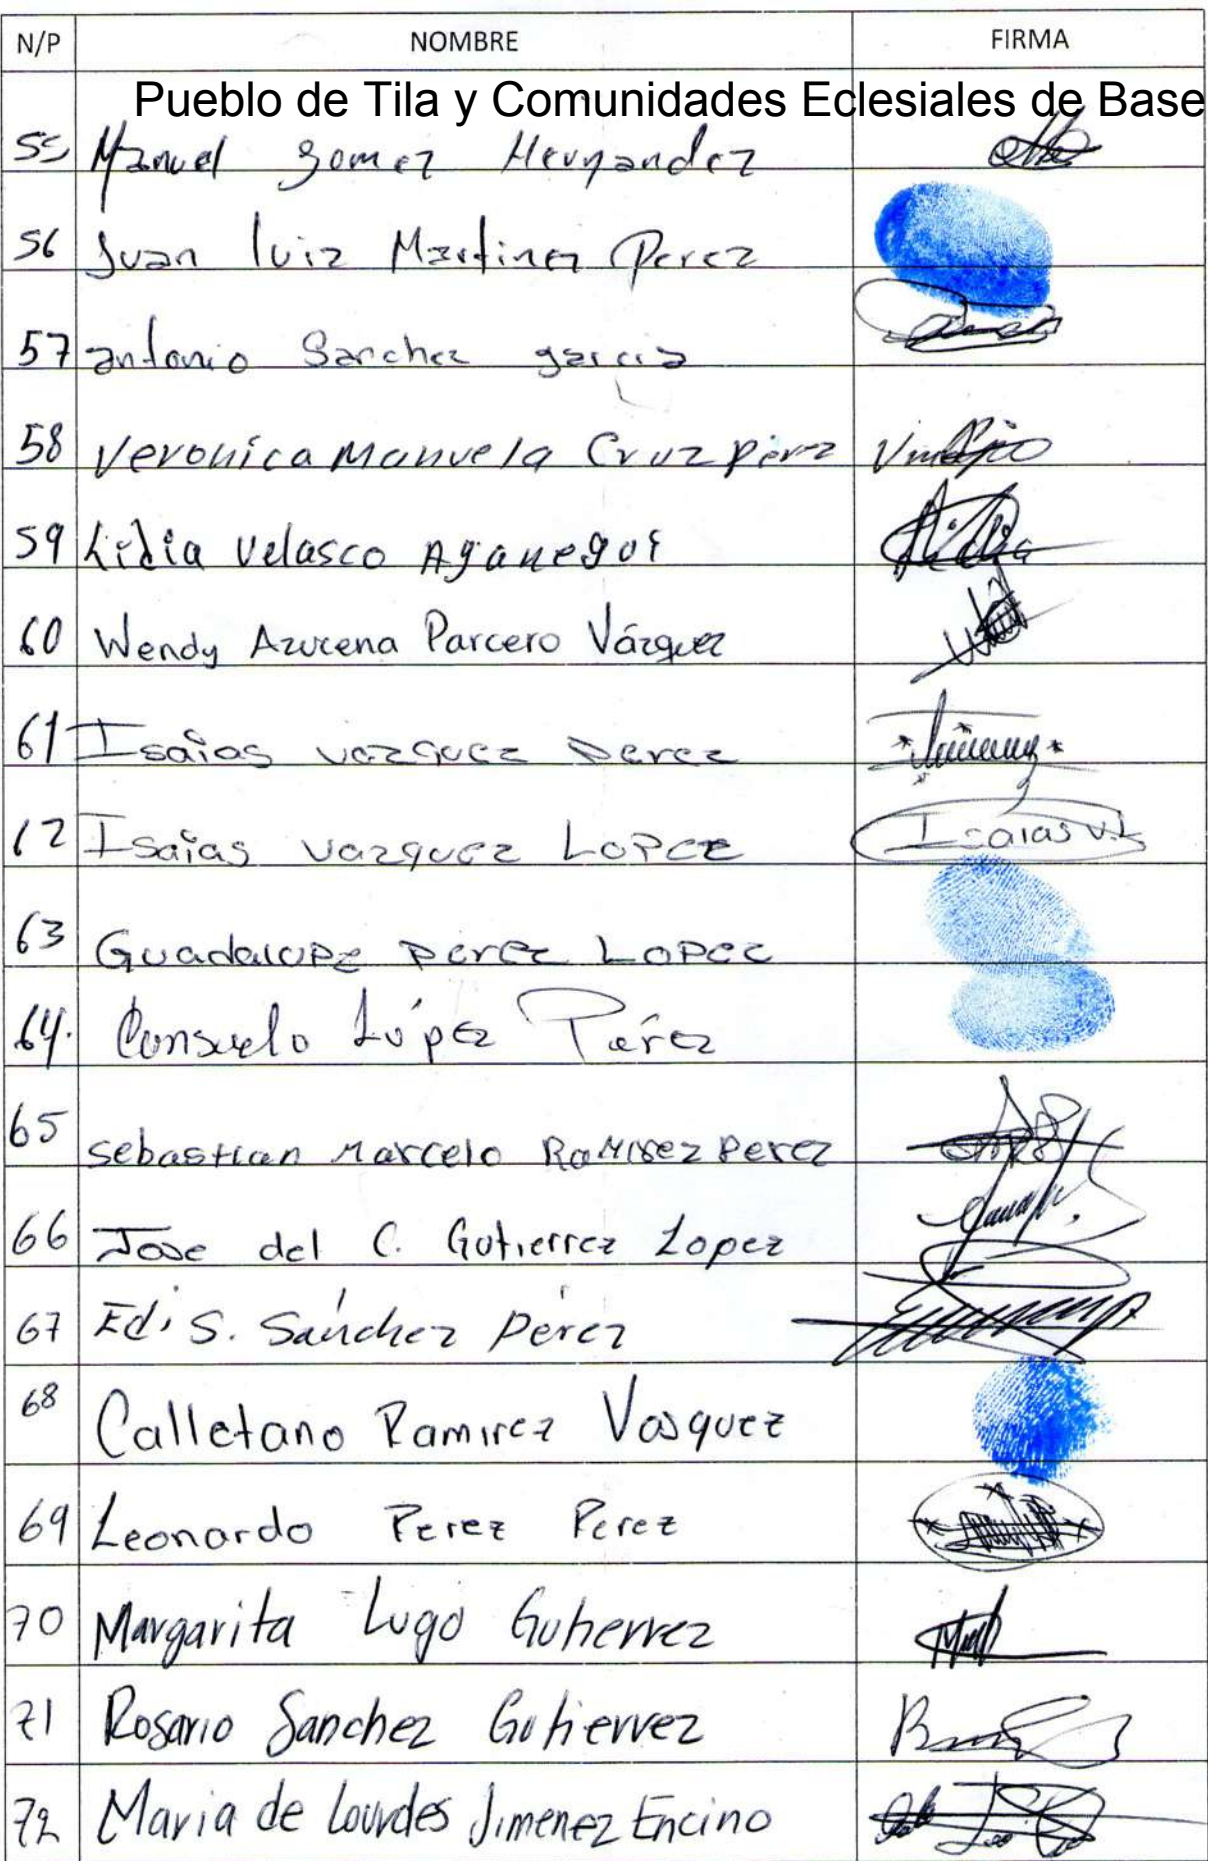 N/P NOMBRE FIRMA
Pueblo de Tila y Comunidades Eclesiales de Base
55 Manuel gomez Hernandez
56 Juan luiz Martinez Perez
57 antonio Sanchez garcia
58 Veronica Manuela Cruz Pérez
59 Lidia Velasco Lidia
60 Wendy Azucena Parcero Vázquez
61 Isaias vazquez perez
62 Isaias vazquez Lopez Isaias V.L
63 Guadalupe perez Lopez
64. Consuelo López Pérez
65 Sebastian Marcelo Ramirez Perez
66 Jose del C. Gutierrez Lopez
67 Edi S. Sánchez Pérez
68 Calletano Ramirez Vasquez
69 Leonardo Perez Perez
70 Margarita Lugo Gutierrez
71 Rosario Sanchez Gutierrez
72 Maria de Lourdes Jimenez Encino